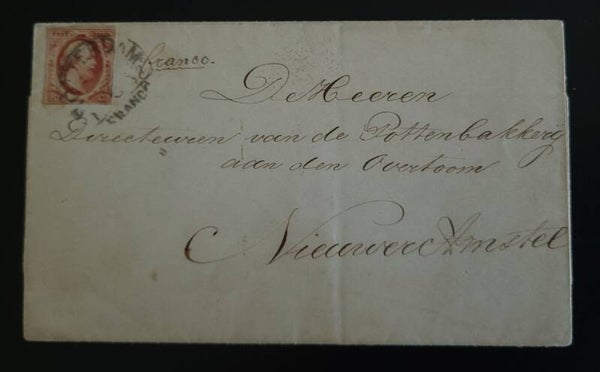 franco.
FRANCO
De Heeren
Directeuren van de Pottenbakkerij
aan den Overtoom
Nieuwer Amstel